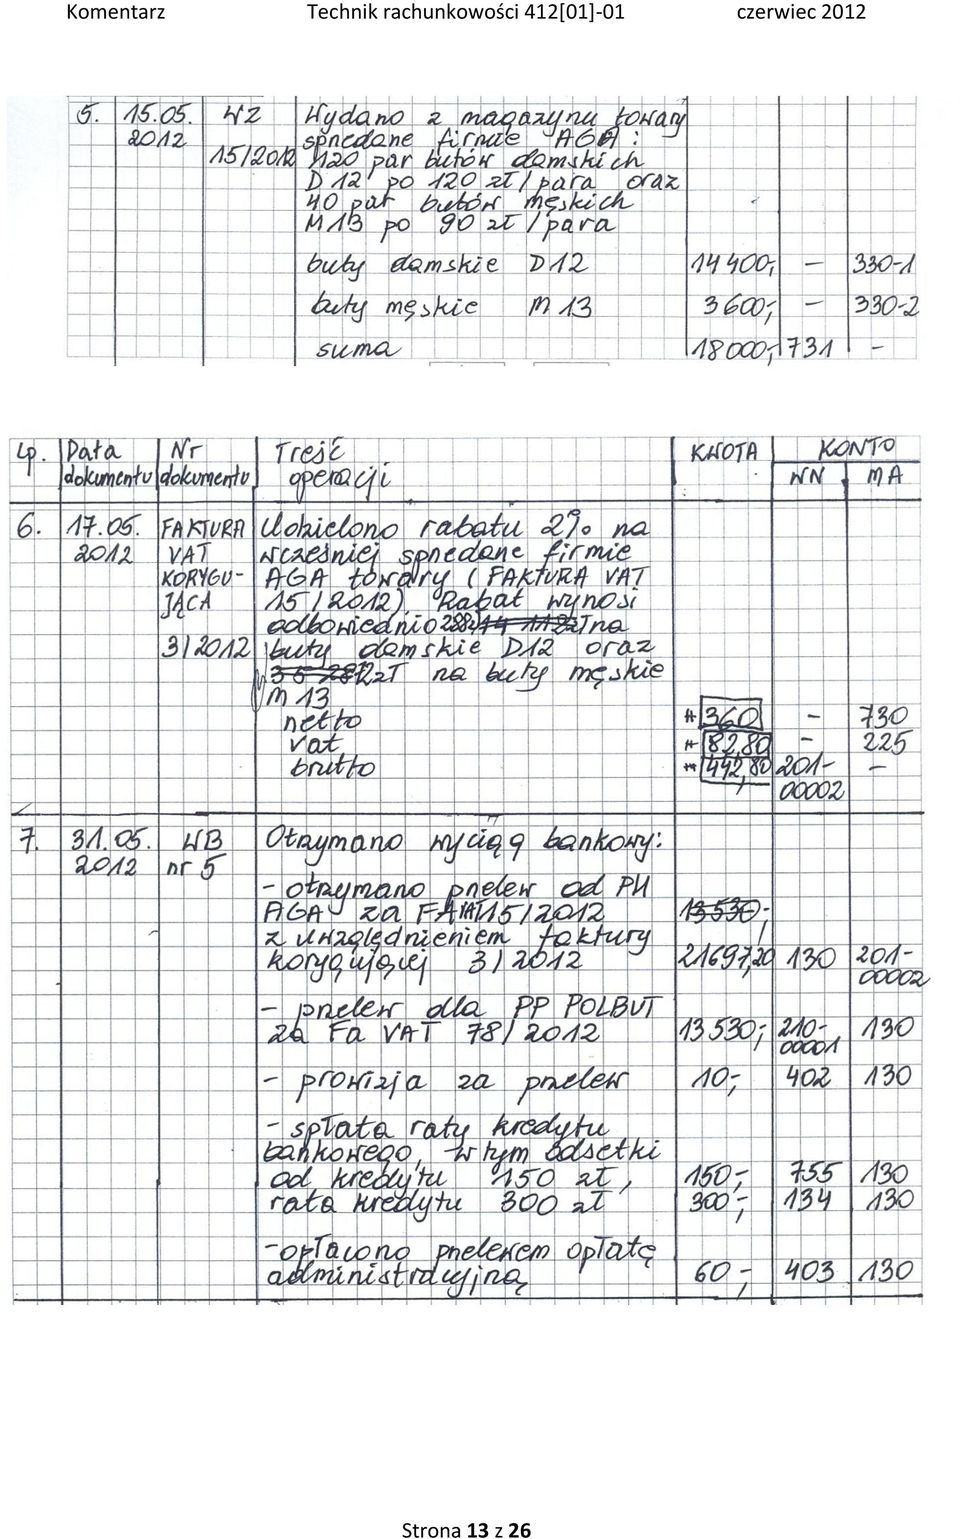 Komentarz Technik rachunkowości 412[01]-01 czerwiec 2012
5. 15.05. WZ Wydano z magazynu towary
2012 sprzedane firmie AGA:
15/2012 120 par butów damskich
D12 po 120 zł/para oraz
40 par butów męskich
M13 po 90 zł/para
buty damskie D12 14 400,- – 330-1
buty męskie M 13 3 600,- – 330-2
suma 18 000,- 731 –
Lp. Data Nr Treść KWOTA KONTO
dokumentu dokumentu operacji WN MA
6. 17.05. FAKTURA Udzielono rabatu 2% na
2012 VAT wcześniej sprzedane firmie
KORYGU- AGA towary (FAKTURA VAT
JĄCA 15/2012). Rabat wynosi
odpowiednio 288 zł na
3/2012 buty damskie D12 oraz
zł na buty męskie
M 13
netto 360 – 730
vat 82,80 – 225
brutto 442,80 201- –
00002
7. 31.05. WB Otrzymano wyciąg bankowy:
2012 nr 5
- otrzymano przelew od PH
AGA za FA VAT 15/2012 13 530,-
z uwzględnieniem faktury
korygującej 3/2012 21697,20 130 201-
00002
- przelew dla PP POLBUT
za Fa VAT 78/2012 13 530,- 210- 130
00001
- prowizja za przelew 10,- 402 130
- spłata raty kredytu
bankowego, w tym odsetki
od kredytu 150 zł, 150,- 755 130
rata kredytu 300 zł 300,- 134 130
- opłacono przelewem opłatę
administracyjną 60,- 403 130
Strona 13 z 26